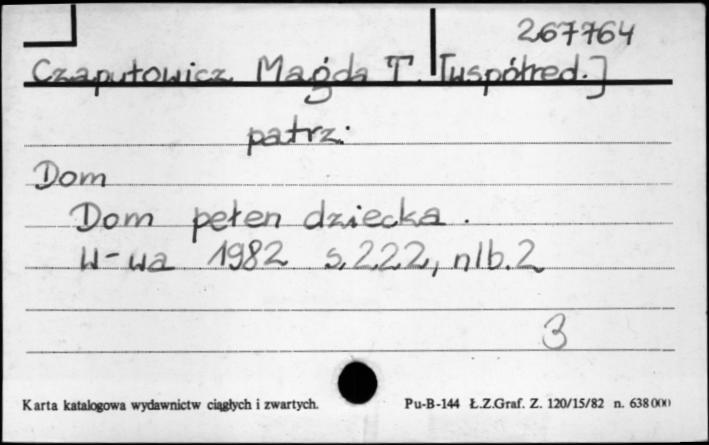 267764
Czaputowicz Magda T. [współred.]
patrz:
Dom
Dom pełen dziecka.
W-wa 1982 s. 222, nlb. 2
3
Karta katalogowa wydawnictw ciągłych i zwartych. Pu-B-144 Ł.Z.Graf. Z. 120/15/82 n. 638 000